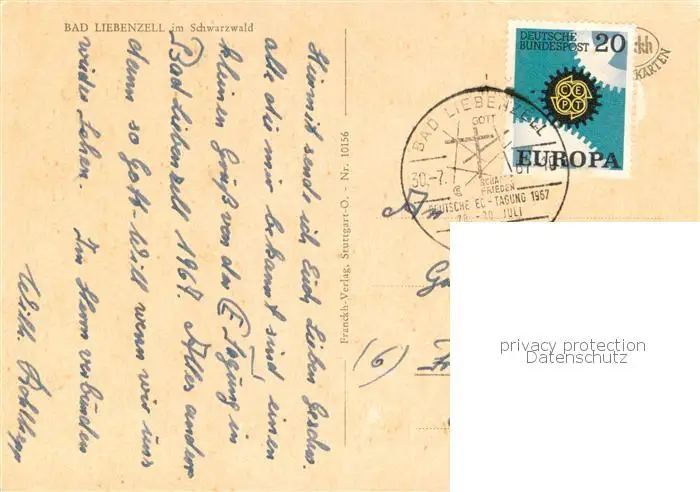 BAD LIEBENZELL im Schwarzwald
Hiermit sende ich Euch Lieben Geschw.
alle die mir bekannt sind einen
kleinen Gruß von der EC Tagung in
Bad Liebenzell 1967. Alles andere
dann so Gott-Will wenn wir uns
wieder sehen. Im Herrn verbunden
Wilh.
Franckh-Verlag, Stuttgart-O. Nr. 10156
DEUTSCHE
BUNDESPOST 20
CEPT
EUROPA
KARTEN
BAD LIEBENZELL
GOTT
30.-7.
SCHAFFT
FRIEDEN
DEUTSCHE EC-TAGUNG 1967
28.-30. JULI
An
(6)
privacy protection
Datenschutz